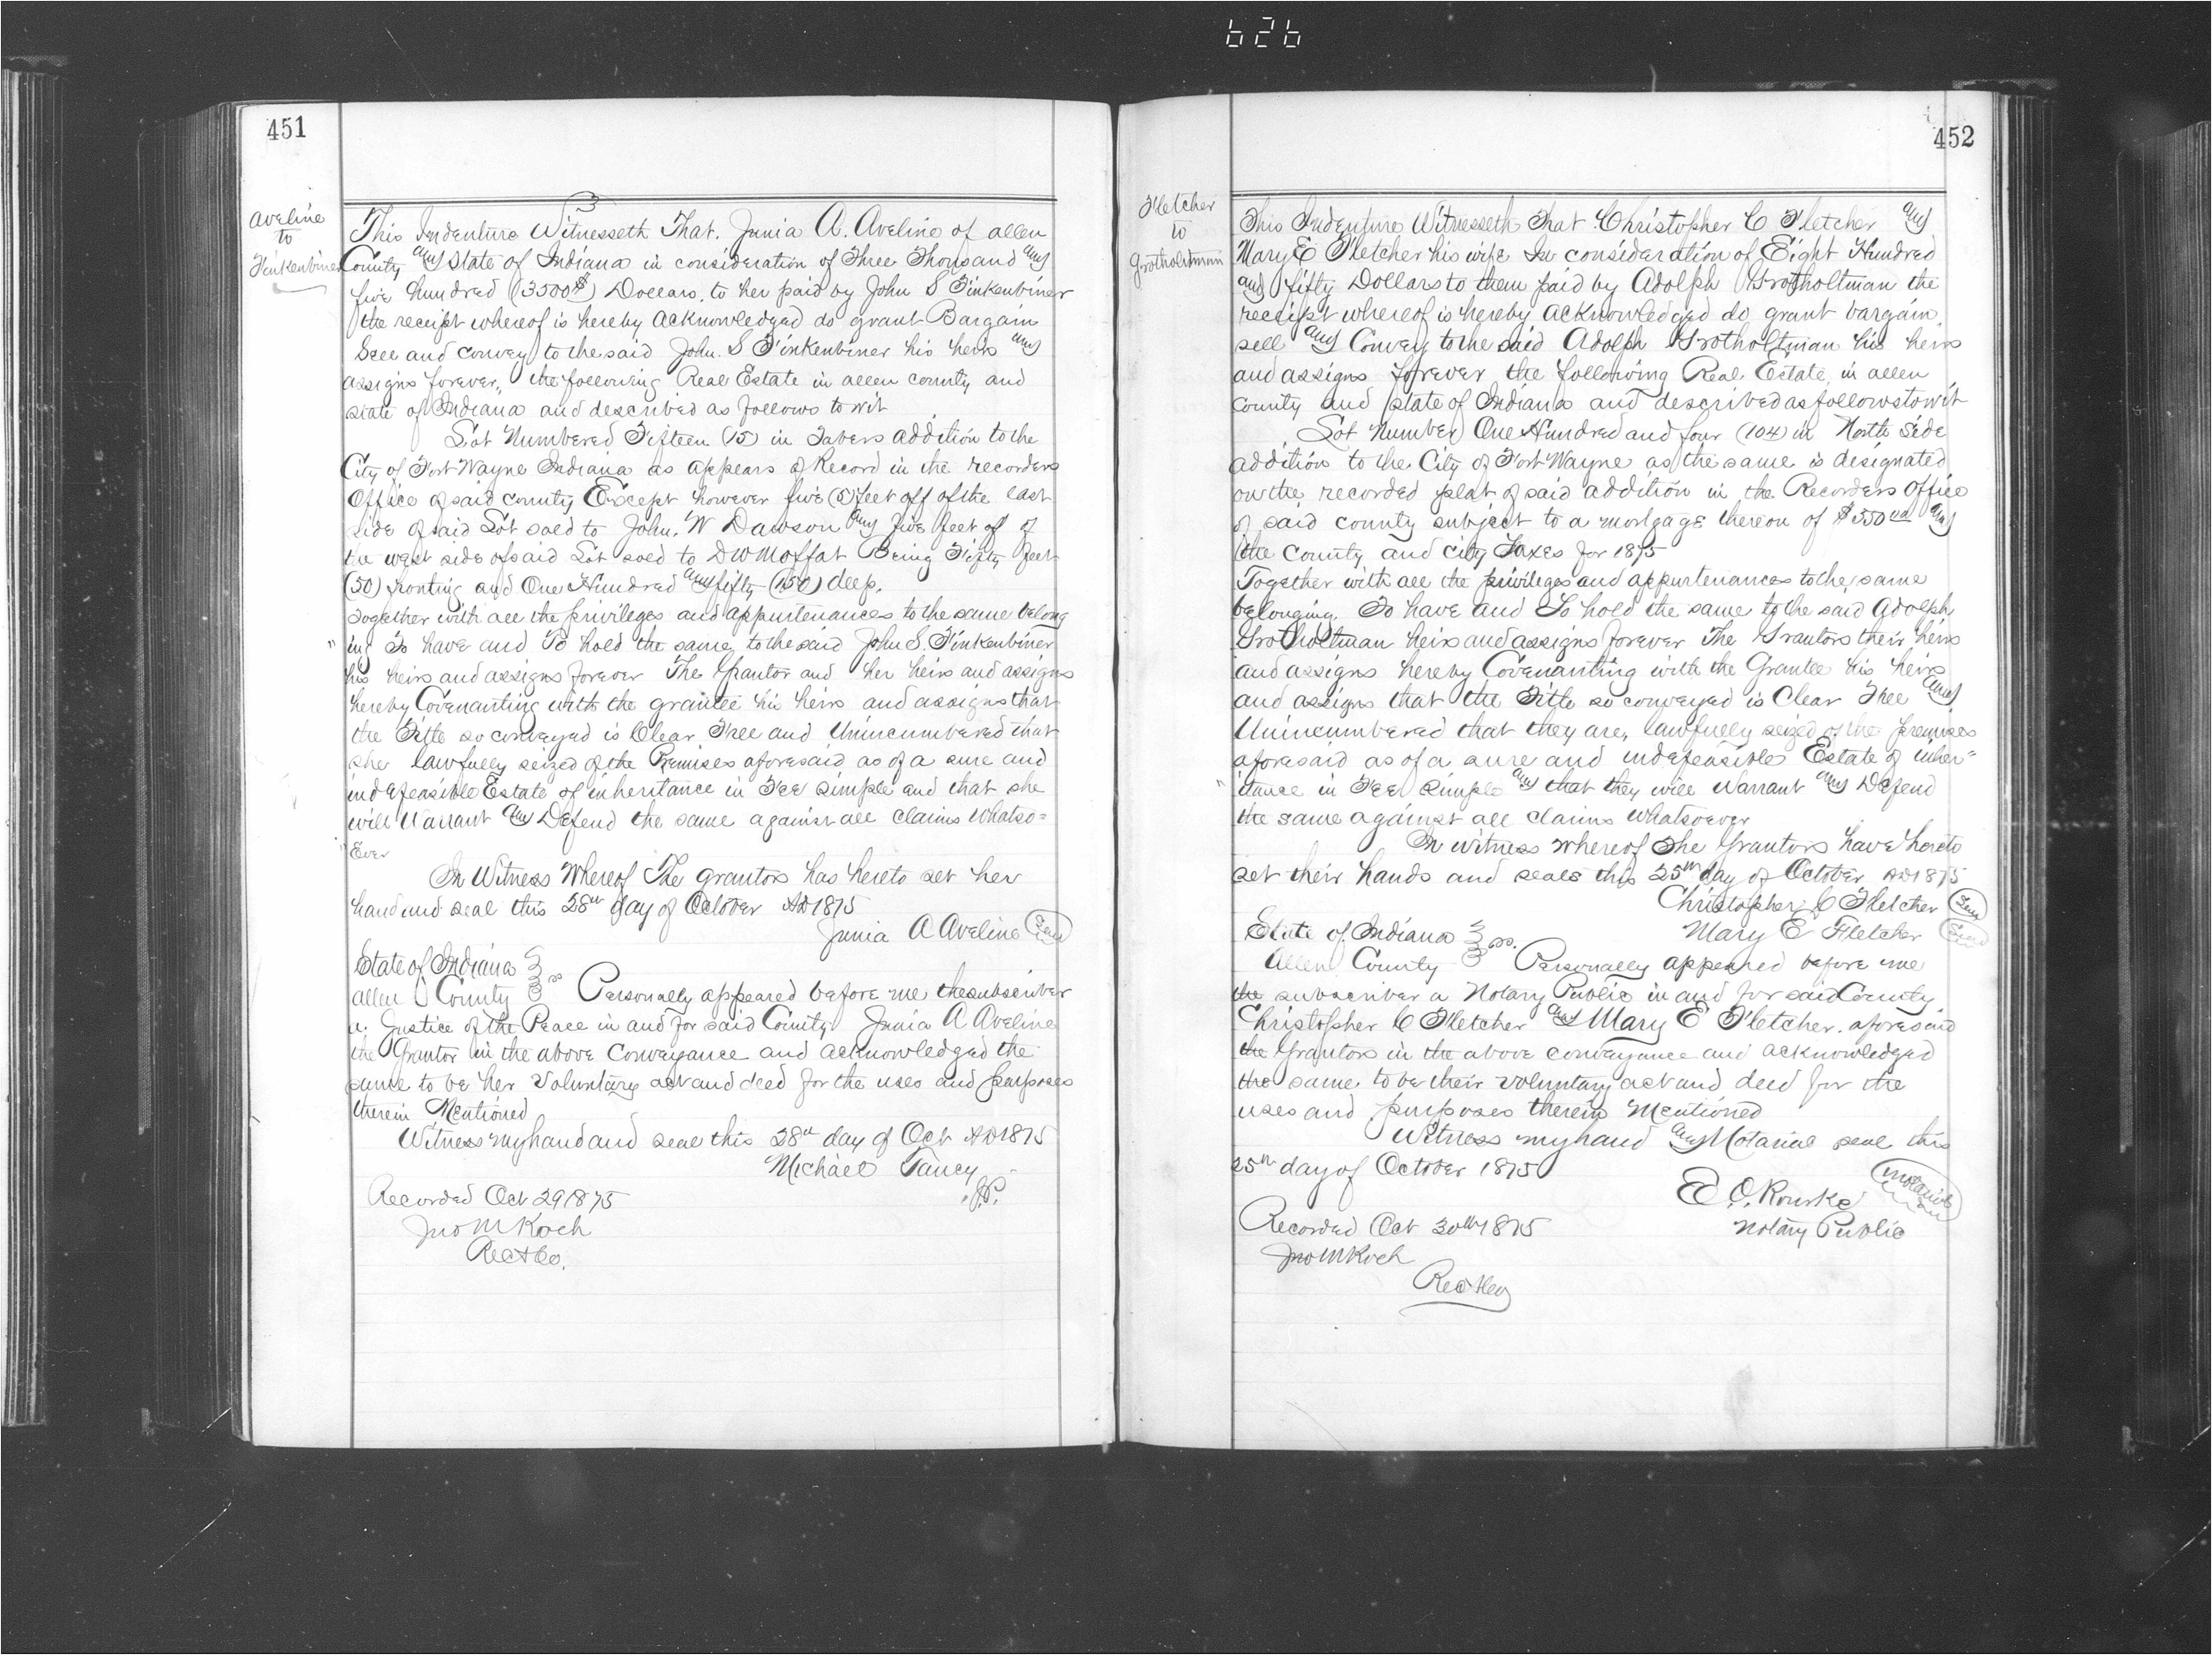 626
451
Aveline
to
Finkenbiner
This Indenture Witnesseth That. Junia A. Aveline of allen
County and State of Indiana in consideration of Three Thousand and
five hundred (3500$) Dollars. to her paid by John S Finkenbiner
the receipt whereof is hereby acknowledged do grant Bargain
Sell and convey to the said John. S Finkenbiner his heirs and
assigns forever, the following Real Estate in allen county and
state of Indiana and described as follows to wit
Lot Numbered Fifteen (15) in Tabers addition to the
City of Fort Wayne Indiana as appears of Record in the recorders
Office of said county Except however five (5) feet off of the east
side of said Lot sold to John. W Dawson and five feet off of
the west side of said Lot sold to D W Moffat Being Fifty feet
(50) fronting and One Hundred and fifty (150) deep.
Together with all the privileges and appurtenances to the same belong
"ing To have and To hold the same to the said John S. Finkenbiner
his heirs and assigns forever The Grantor and her heirs and assigns
hereby Covenanting with the grantee his heirs and assigns that
the Title so conveyed is Clear Free and Unincumbered that
she lawfully seized of the Premises aforesaid as of a sure and
indefeasible Estate of inheritance in Fee Simple and that she
will Warrant and Defend the same against all claims Whatso=
"Ever
In Witness Whereof The grantors has hereto set her
hand and seal this 28th day of October AD 1875
Junia A Aveline Seal
State of Indiana
allen County ss Personally appeared before me the subscriber
a. Justice of the Peace in and for said County Junia A Aveline
the Grantor in the above Conveyance and acknowledged the
same to be her Voluntary act and deed for the uses and purposes
therein Mentioned
Witness my hand and seal this 28th day of Oct AD 1875
Michael Tancy
J.P.
Recorded Oct 29 1875
Jno M Koch
Rec A Co.
452
Fletcher
to
Grotholtman
This Indenture Witnesseth That Christopher C Fletcher and
Mary E Fletcher his wife In consideration of Eight Hundred
and fifty Dollars to them paid by Adolph Grotholtman the
receipt whereof is hereby acknowledged do grant bargain
sell and Convey to the said Adolph Grotholtman his heirs
and assigns forever the following Real Estate in allen
County and state of Indiana and described as follows to wit
Lot Number One Hundred and four (104) in North Side
addition to the City of Fort Wayne as the same is designated
on the recorded plat of said addition in the Recorders Office
of said county subject to a mortgage thereon of $550 and
the County and City Taxes for 1875
Together with all the privileges and appurtenances to the same
belonging. To have and To hold the same to the said Adolph
Grotholtman heirs and assigns forever The Grantors their heirs
and assigns hereby Covenanting with the Grantee his heirs
and assigns that the Title so conveyed is Clear Free and
Unincumbered that they are, lawfully seized of the premises
aforesaid as of a sure and indefeasible Estate of inher=
"itance in Fee Simple and that they will Warrant and Defend
the same against all claims whatsoever
In witness whereof The Grantors have hereto
set their hands and seals this 25th day of October AD 1875
Christopher C Fletcher Seal
Mary E Fletcher Seal
State of Indiana
Allen County ss. Personally appeared before me
the subscriber a Notary Public in and for said County
Christopher C Fletcher and Mary E Fletcher. aforesaid
the Grantors in the above conveyance and acknowledged
the same to be their voluntary act and deed for the
uses and purposes therein Mentioned
Witness my hand and Notarial seal this
25th day of October 1875
E O. Rourke Notarial
Notary Public
Recorded Oct 30th 1875
Jno M Koch